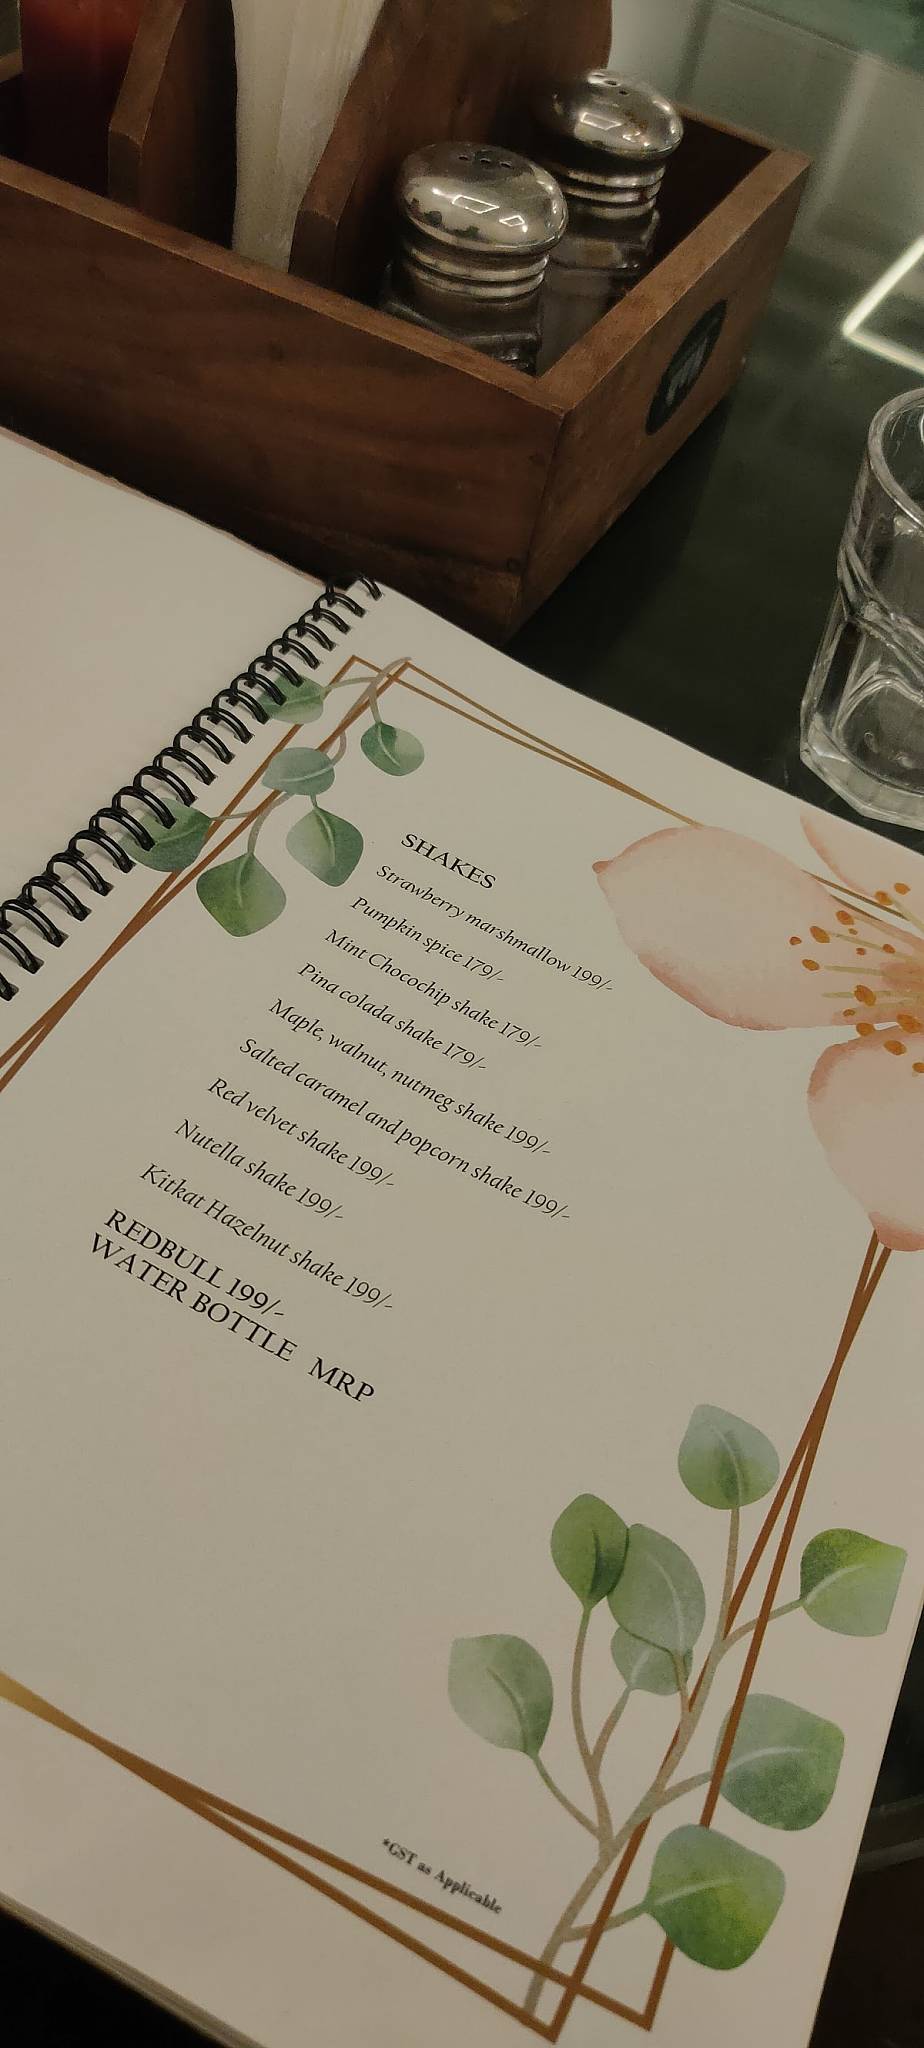 SHAKES
Strawberry marshmallow 199/-
Pumpkin spice 179/-
Mint Chocochip shake 179/-
Pina colada shake 179/-
Maple, walnut, nutmeg shake 199/-
Salted caramel and popcorn shake 199/-
Red velvet shake 199/-
Nutella shake 199/-
Kitkat Hazelnut shake 199/-
REDBULL 199/-
WATER BOTTLE MRP
*GST as Applicable